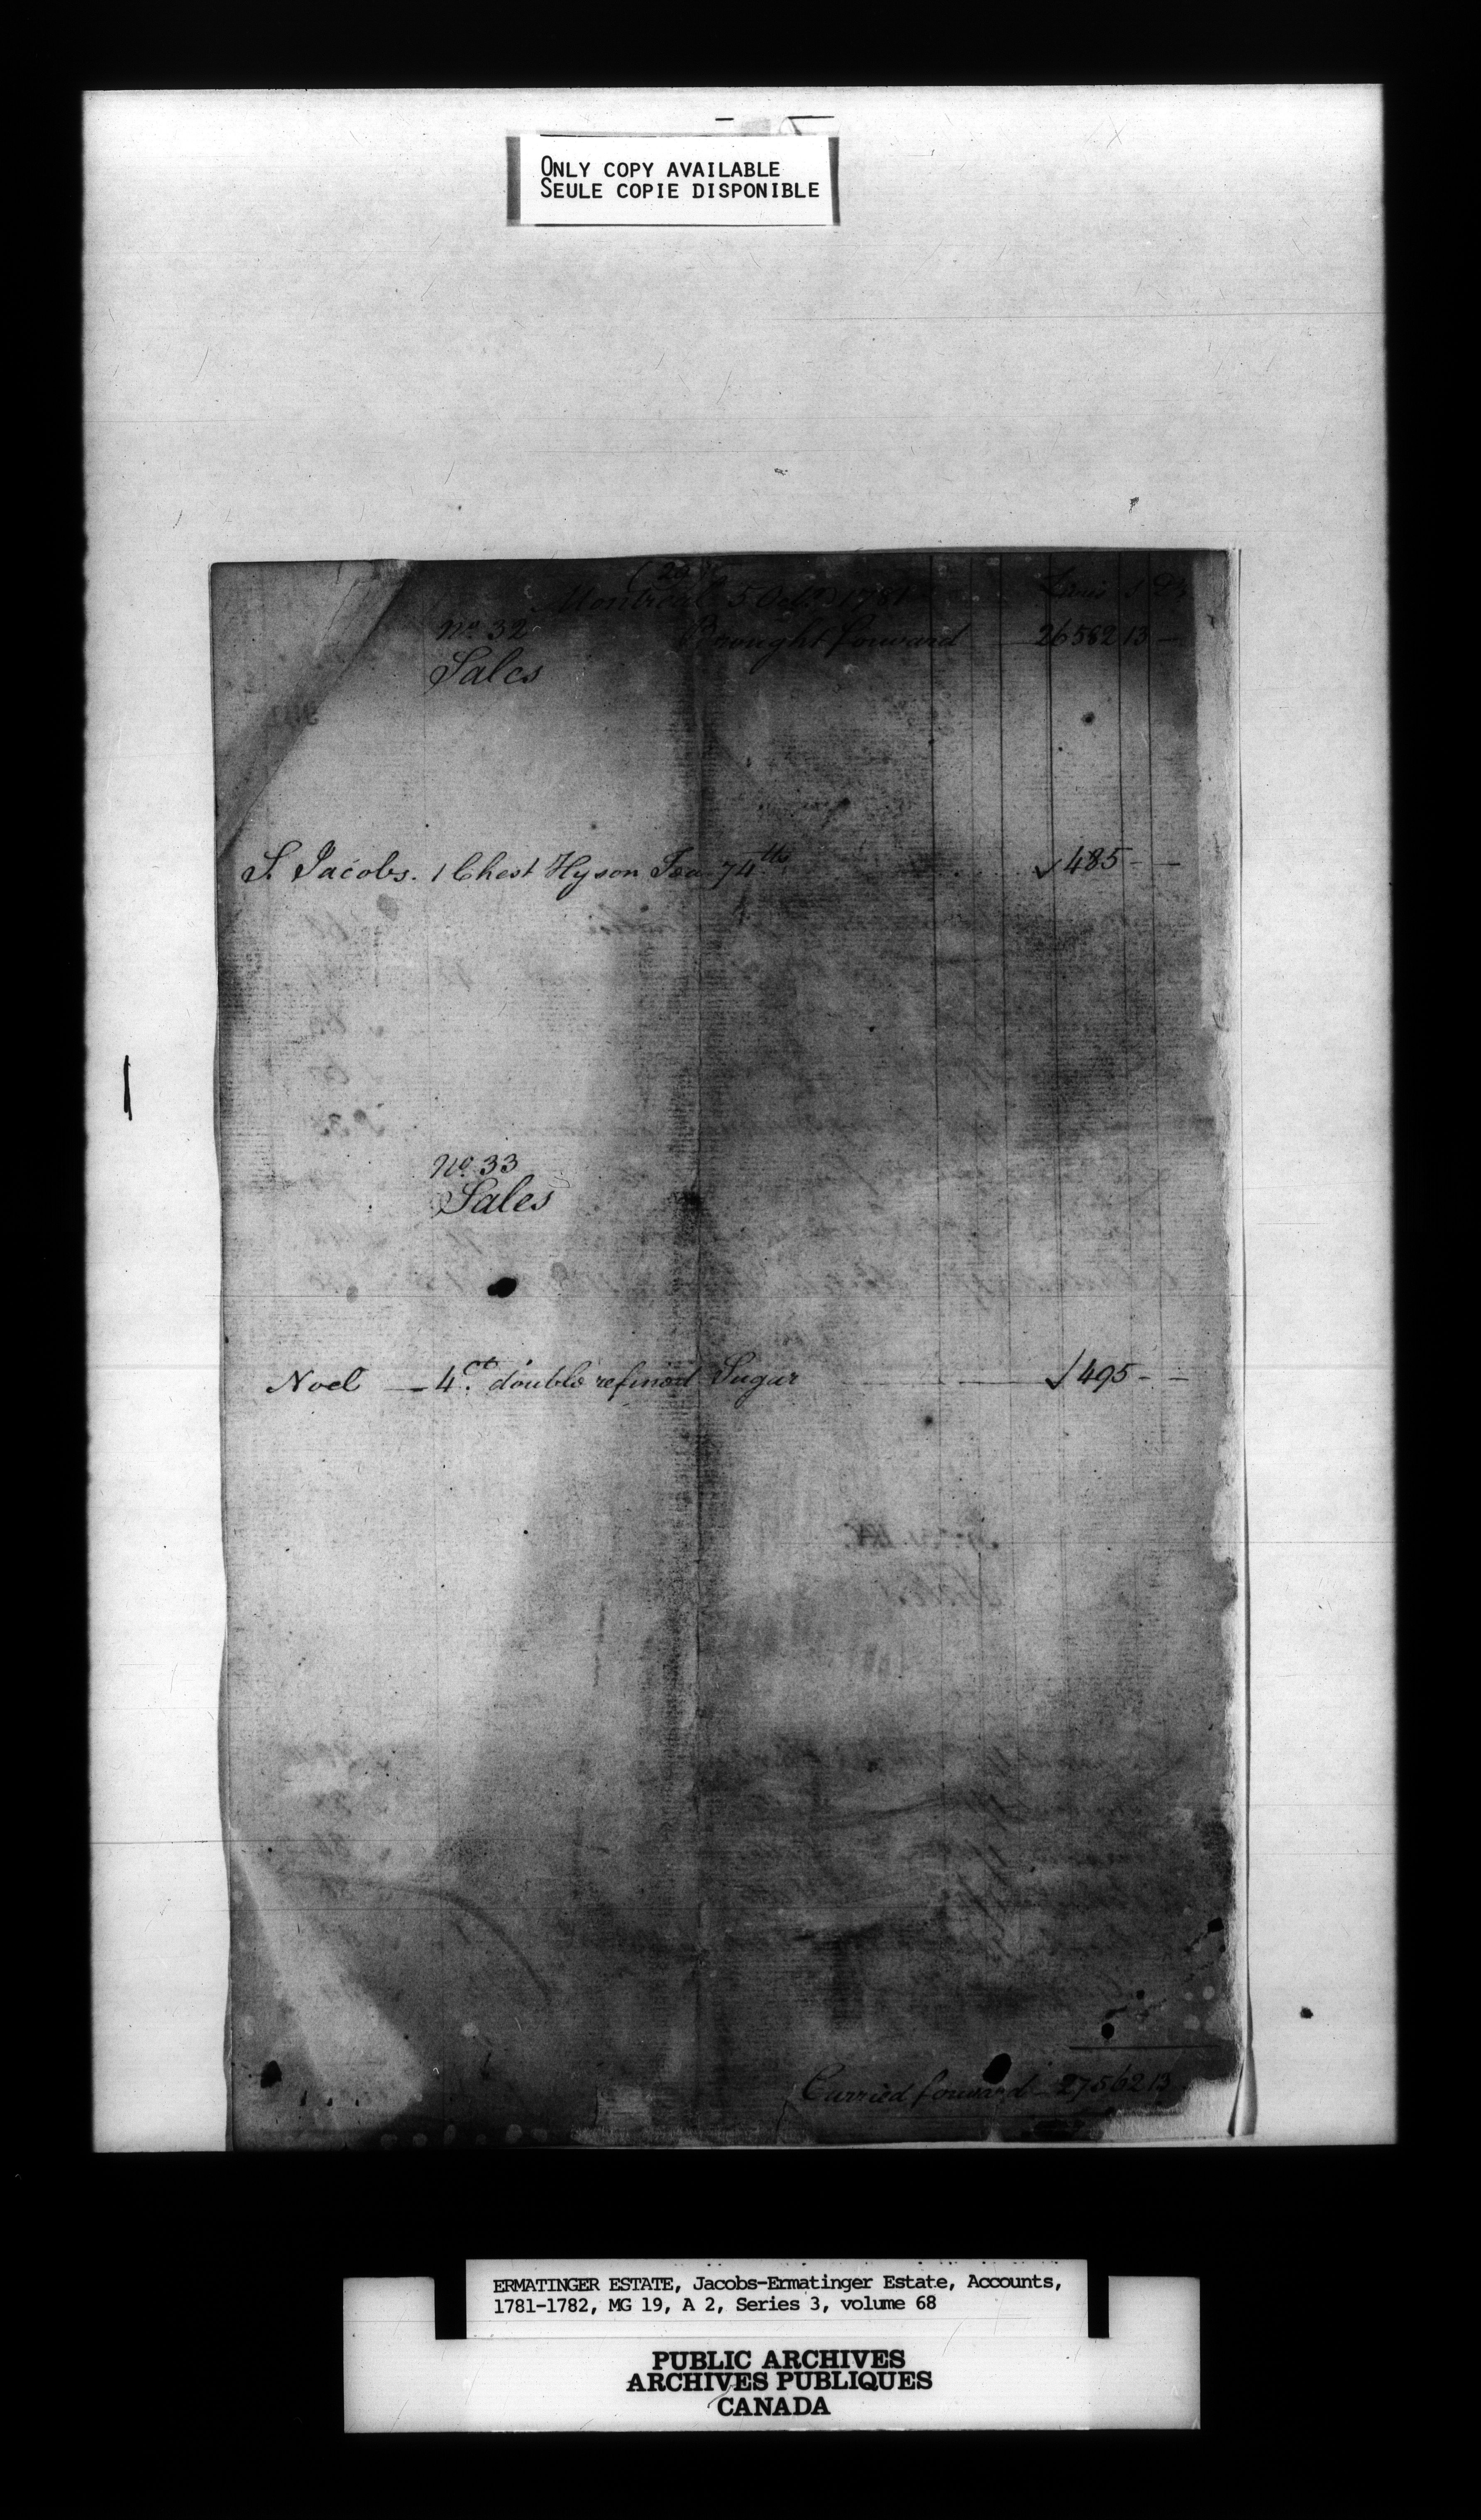 ONLY COPY AVAILABLE
SEULE COPIE DISPONIBLE
(29)
Montreal 5 Octr. 1781
No. 32 Brought forward 26582 13 —
Sales
S. Jacobs. 1 Chest Hyson Tea 74 lbs √ 485 - —
No. 33
Sales
Noel — 4 Ct. double refined Sugar √ 495 - —
Carried forward — 27562 13
ERMATINGER ESTATE, Jacobs-Ermatinger Estate, Accounts,
1781-1782, MG 19, A 2, Series 3, volume 68
PUBLIC ARCHIVES
ARCHIVES PUBLIQUES
CANADA